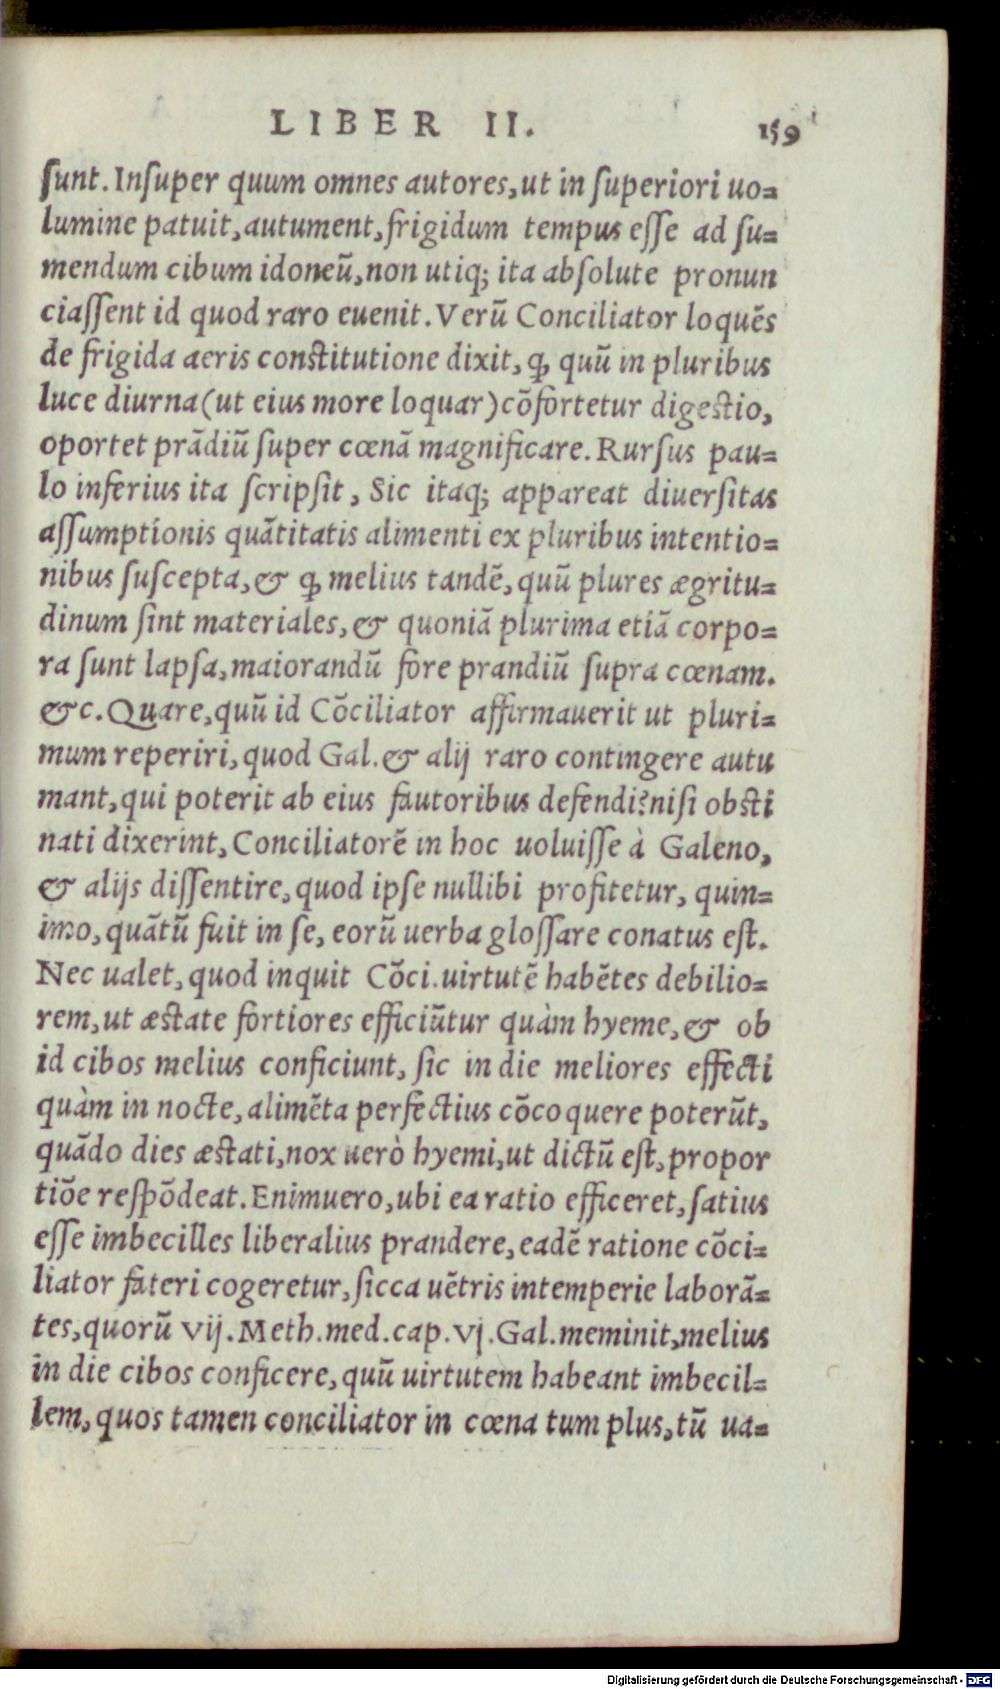 LIBER II. 159
sunt. Insuper quum omnes autores, ut in superiori uo=
lumine patuit, autument, frigidum tempus esse ad su=
mendum cibum idoneũ, non utiq; ita absolute pronun
ciassent id quod raro euenit. Verũ Conciliator loquẽs
de frigida aeris constitutione dixit, ꝙ quũ in pluribus
luce diurna (ut eius more loquar) cõfortetur digestio,
oportet prãdiũ super cœnã magnificare. Rursus pau=
lo inferius ita scripsit, Sic itaq; appareat diuersitas
assumptionis quãtitatis alimenti ex pluribus intentio=
nibus suscepta, & ꝙ melius tandẽ, quũ plures ægritu=
dinum sint materiales, & quoniã plurima etiã corpo=
ra sunt lapsa, maiorandũ fore prandiũ supra cœnam.
&c. Quare, quũ id Cõciliator affirmauerit ut pluri=
mum reperiri, quod Gal. & alij raro contingere autu
mant, qui poterit ab eius fautoribus defendi? nisi obsti
nati dixerint, Conciliatorẽ in hoc uoluisse à Galeno,
& alijs dissentire, quod ipse nullibi profitetur, quin=
imo, quãtũ fuit in se, eorũ uerba glossare conatus est.
Nec ualet, quod inquit Cõci. uirtutẽ habẽtes debilio=
rem, ut æstate fortiores efficiũtur quàm hyeme, & ob
id cibos melius conficiunt, sic in die meliores effecti
quàm in nocte, alimẽta perfectius cõcoquere poterũt,
quãdo dies æstati, nox uerò hyemi, ut dictũ est, propor
tiõe respõdeat. Enimuero, ubi ea ratio efficeret, satius
esse imbecilles liberalius prandere, eadẽ ratione cõci=
liator fateri cogeretur, sicca uẽtris intemperie laborã=
tes, quorũ vij. Meth. med. cap. vj. Gal. meminit, melius
in die cibos conficere, quũ uirtutem habeant imbecil=
lem, quos tamen conciliator in cœna tum plus, tũ ua=
Digitalisierung gefördert durch die Deutsche Forschungsgemeinschaft - DFG